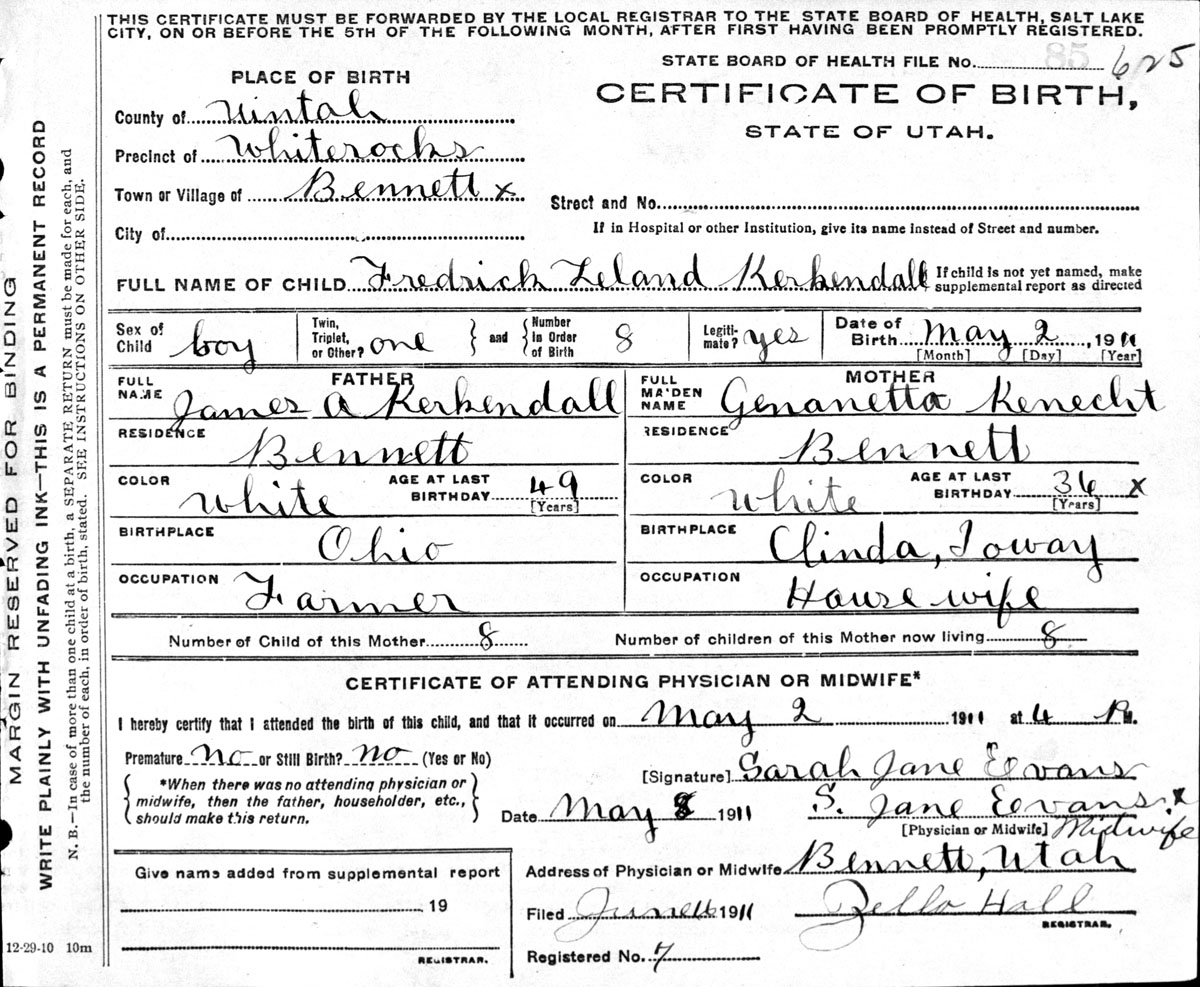 THIS CERTIFICATE MUST BE FORWARDED BY THE LOCAL REGISTRAR TO THE STATE BOARD OF HEALTH, SALT LAKE
CITY, ON OR BEFORE THE 5TH OF THE FOLLOWING MONTH, AFTER FIRST HAVING BEEN PROMPTLY REGISTERED.
STATE BOARD OF HEALTH FILE No. 85 625
PLACE OF BIRTH
CERTIFICATE OF BIRTH,
STATE OF UTAH.
County of Uintah
Precinct of Whiterocks
Town or Village of Bennett x
Street and No.
City of
If in Hospital or other Institution, give its name instead of Street and number.
FULL NAME OF CHILD Fredrick Leland Kerkendall
If child is not yet named, make
supplemental report as directed
Sex of
Child boy
Twin,
Triplet,
or Other? one
and
Number
in Order
of Birth 8
Legiti-
mate? yes
Date of
Birth May 2, 1911
[Month] [Day] [Year]
FATHER
FULL
NAME James A Kerkendall
RESIDENCE Bennett
COLOR White
AGE AT LAST
BIRTHDAY 49
[Years]
BIRTHPLACE Ohio
OCCUPATION Farmer
MOTHER
FULL
MAIDEN
NAME Genanetta Kenecht
RESIDENCE Bennett
COLOR White
AGE AT LAST
BIRTHDAY 36 x
[Years]
BIRTHPLACE Clinda, Ioway
OCCUPATION House wife
Number of Child of this Mother 8
Number of children of this Mother now living 8
CERTIFICATE OF ATTENDING PHYSICIAN OR MIDWIFE*
I hereby certify that I attended the birth of this child, and that it occurred on May 2 1911 at 4 P M.
Premature No or Still Birth? No (Yes or No)
*When there was no attending physician or
midwife, then the father, householder, etc.,
should make this return.
[Signature] Sarah Jane Eevans
Date May 8 1911
S. Jane Eevans x
[Physician or Midwife] Midwife
Address of Physician or Midwife Bennett, Utah
Filed June 1911
Zella Hall
REGISTRAR.
Registered No. 7
Give name added from supplemental report
19
REGISTRAR.
12-29-10 10m
MARGIN RESERVED FOR BINDING
WRITE PLAINLY WITH UNFADING INK—THIS IS A PERMANENT RECORD
N. B.—In case of more than one child at a birth, a SEPARATE RETURN must be made for each, and
the number of each, in order of birth, stated. SEE INSTRUCTIONS ON OTHER SIDE.